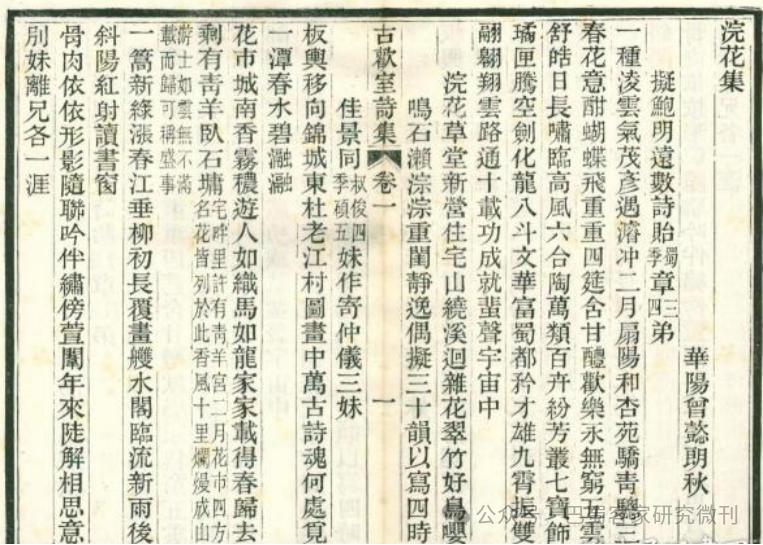 浣花集
華陽曾懿朗秋
擬鮑明遠數詩貽蜀季章三四弟
一種淩雲氣茂彥遇濬冲二月扇陽和杏苑驕青驄三
春花意酣蝴蝶飛重重四筵含甘醴歡樂永無窮五雲
舒皓日長嘯臨高風六合陶萬類百卉紛芳叢七寶飾
璚匣騰空劍化龍八斗文華富蜀都矜才雄九霄振雙
翮翱翔雲路通十載功成就蜚聲宇宙中
浣花草堂新營住宅山繞溪迴雜花翠竹好鳥嚶
鳴石瀨淙淙重闈靜逸偶擬三十韻以寫四時
古歡室詩集 卷一 一
佳景同叔俊四季碩五妹作寄仲儀三妹
板輿移向錦城東杜老江村圖畫中萬古詩魂何處覓
一潭春水碧瀜瀜
花市城南香霧穠遊人如織馬如龍家家載得春歸去
剩有青羊臥石墉宅畔里許有青羊宮二月花市四方
名花皆列於此香風十里爛熳成山
游士如雲無不滿
載而歸可稱盛事
一篙新綠漲春江垂柳初長覆畫艭水閣臨流新雨後
斜陽紅射讀書窗
骨肉依依形影隨聯吟伴繡傍萱闈年來陡解相思意
別妹離兄各一涯
公众号 巴蜀客家研究微刊